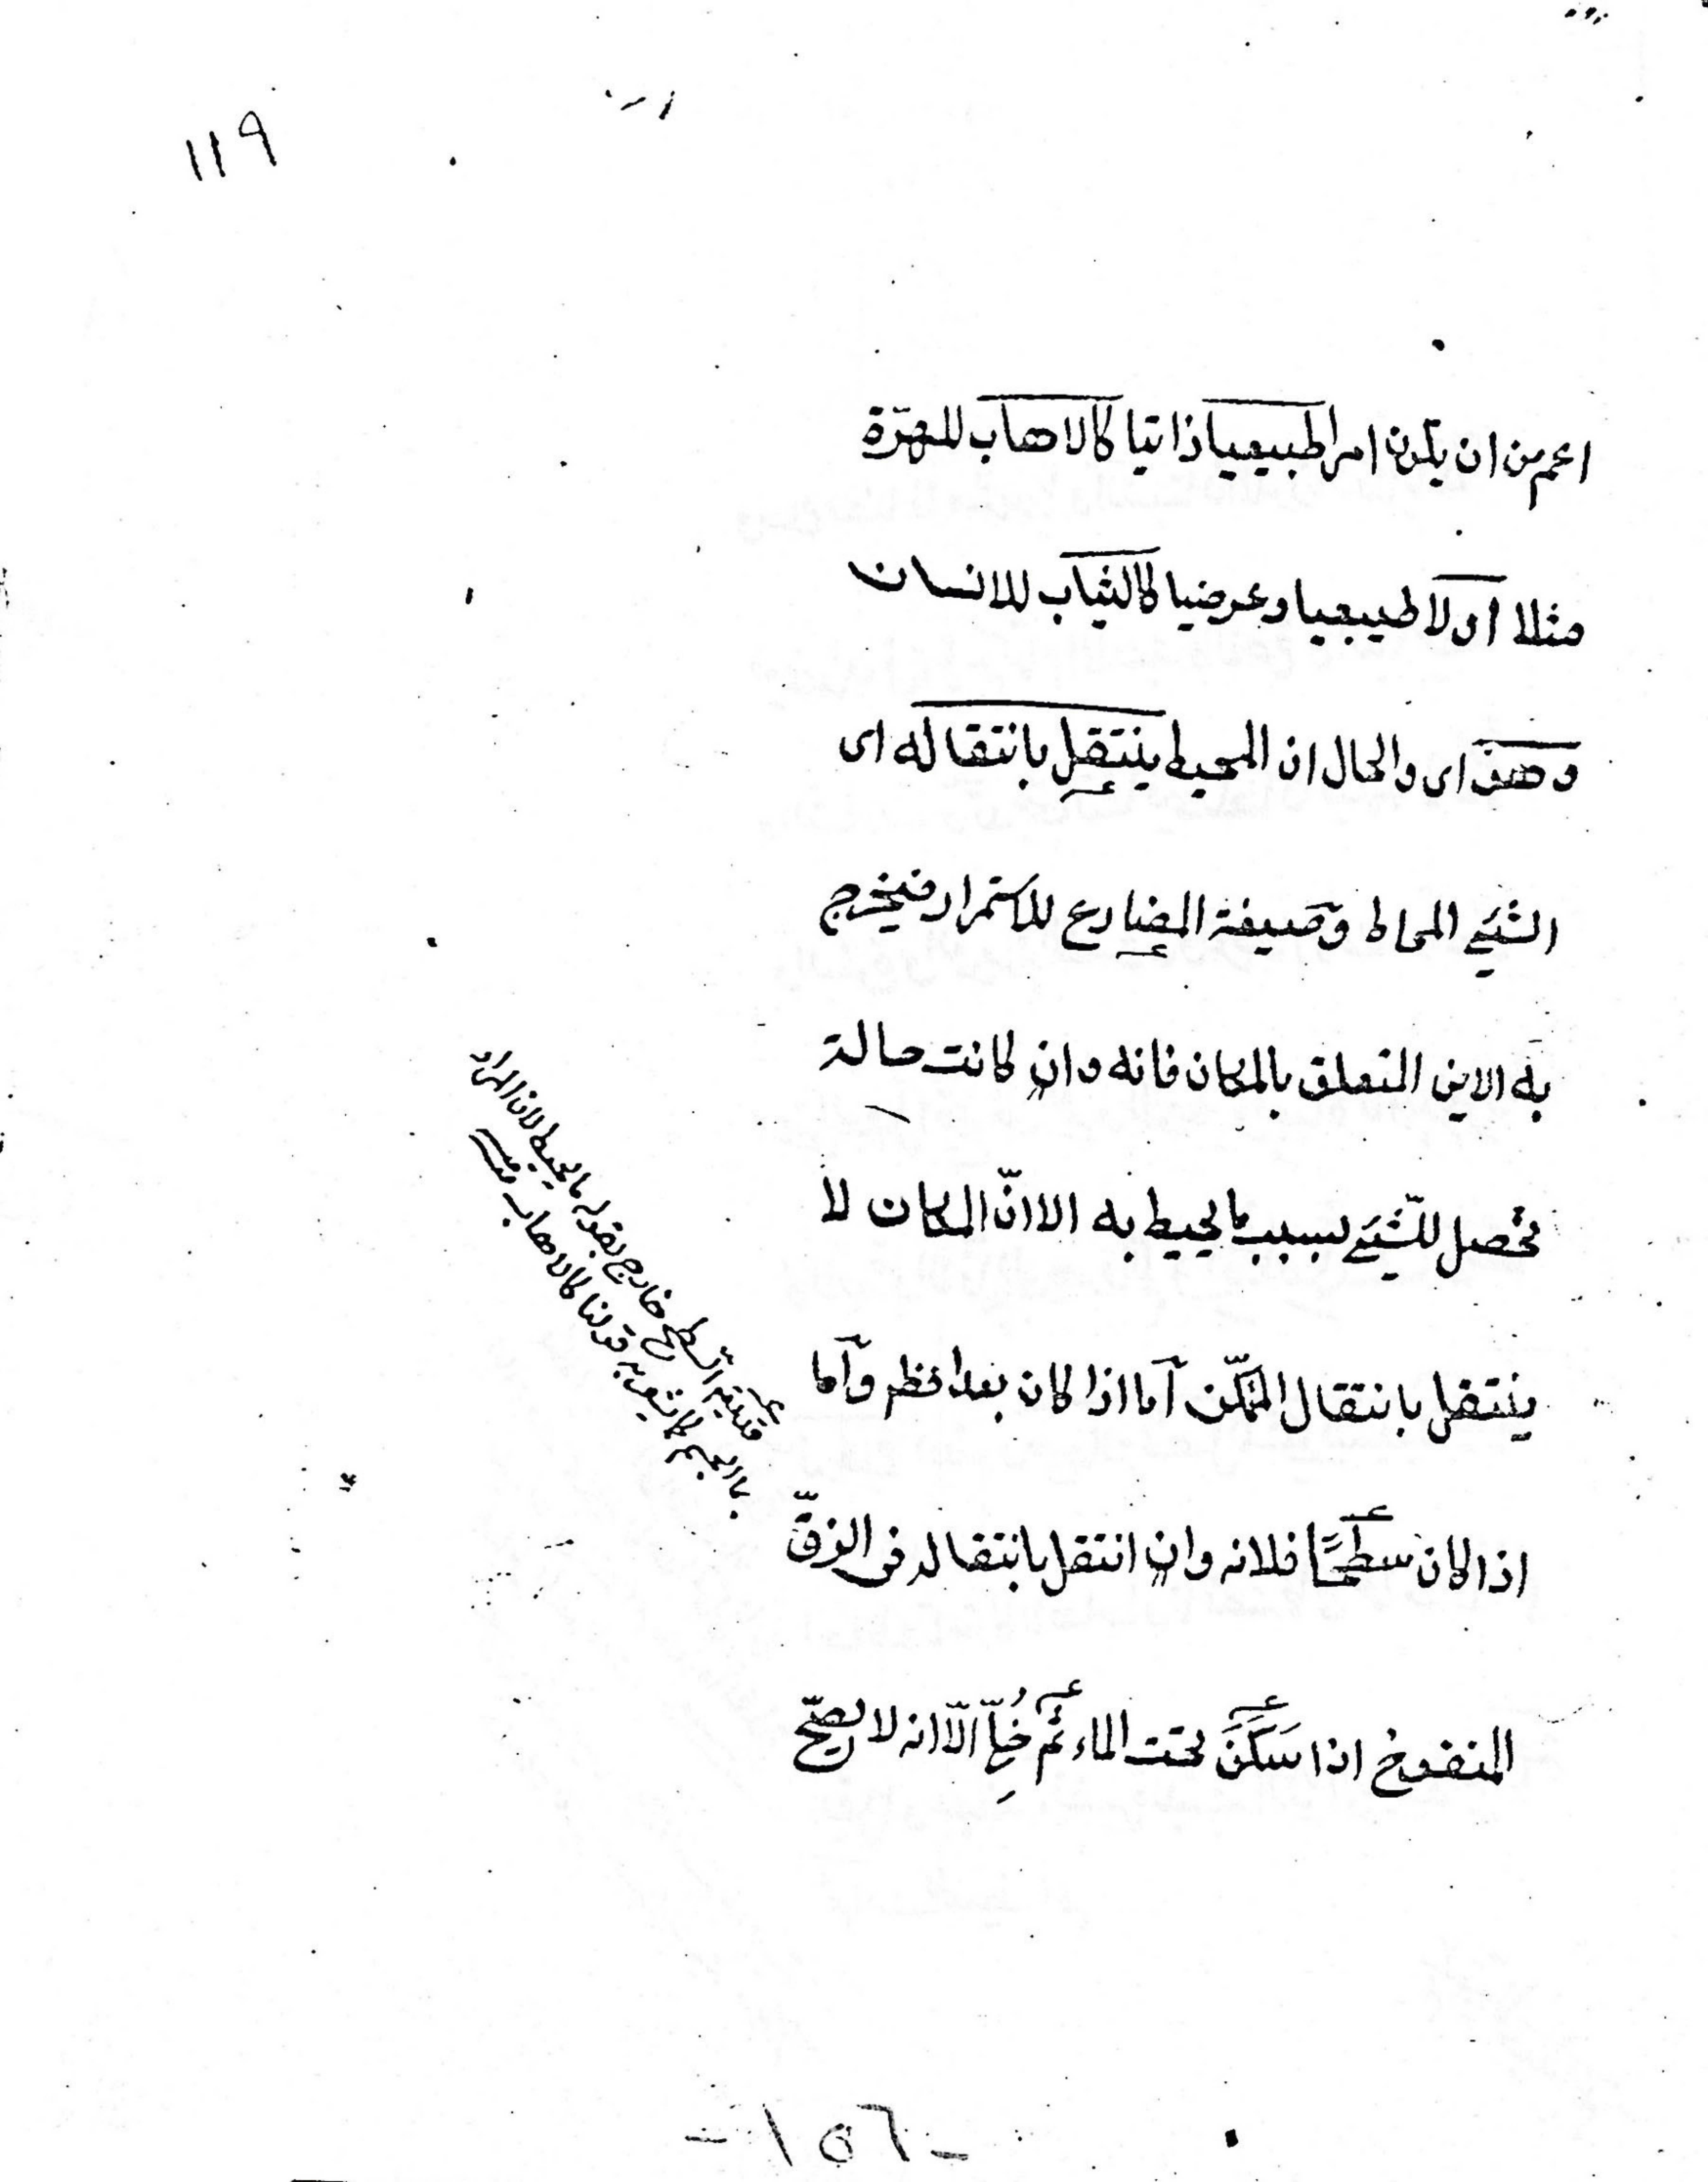 ١١٩
اعم من ان يكون امرا طبيعيا ذاتيا كالاهاب للهرّة
مثلا او لا طبيعيا وعرضيا كالثياب للانسان
وهو اى والحال ان المحيط ينتقل بانتقاله اى
الشيئ المحاط وصيغة المضارع للاستمرار فيخرج
به الاين المتعلق بالمكان فانه وان كانت حالة
تحصل للشّيئ بسبب ما يحيط به الا انّ المكان لا
ينتقل بانتقال المتمكّن اما اذا كان بعدا فظهر واما
اذا كان سطحًا فلانه وان انتقل بانتقاله فى الزقّ
المنفوخ اذا سَكَنَ تحت الماء ثم خُلِّىَ الّا انه لا يصحّ
السطح خارج بقوله ما يحيط لان المراد
الجسم كما يشعر به قولنا كالاهاب
-١٥٦-